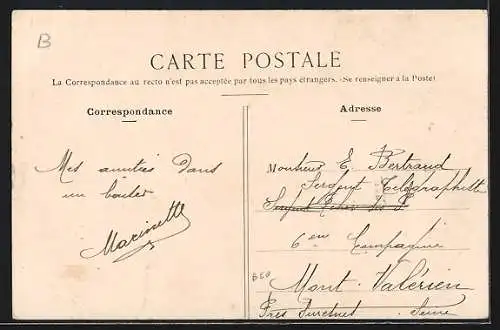 B
CARTE POSTALE
La Correspondance au recto n'est pas acceptée par tous les pays étrangers. (Se renseigner à la Poste)
Correspondance
Adresse
Mes amitiés Dans
un
Marinette
Monsieur E. Bertrand
Sergent Télégraphiste
Sergent
6eme Compagnie
Mont-Valérien
Près
Seine